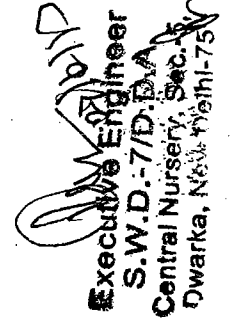 Executive Engineer
S.W.D.-7/D.D.A
Central Nursery, Sec.-5,
Dwarka, New Delhi-75